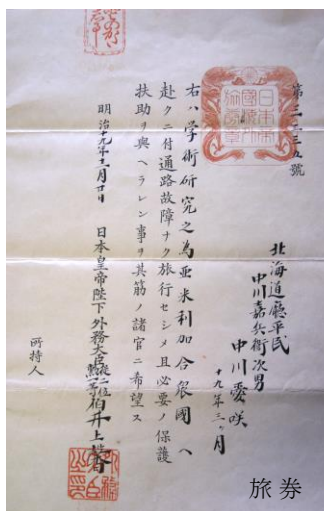 第三二三五號
北海道廳平民
中川嘉兵衛次男
中川愛咲
十九年三ヶ月
右ハ学術研究之為亜米利加合衆國ヘ
赴クニ付通路故障ナク旅行セシメ且必要ノ保護
扶助ヲ與ヘラレン事ヲ其筋ノ諸官ニ希望ス
明治十九年十一月廿日
日本皇帝陛下外務大臣従二位勲一等伯井上馨
所持人
旅券